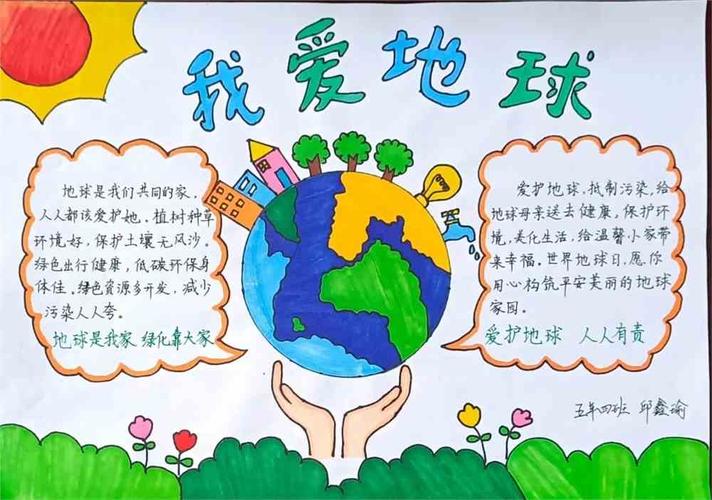 我爱地球
地球是我们共同的家，
人人都该爱护她。植树种草
环境好，保护土壤无风沙。
绿色出行健康，低碳环保身
体佳。绿色资源多开发，减少
污染人人夸。
地球是我家 绿化靠大家
爱护地球，抵制污染，给
地球母亲送去健康，保护环
境，美化生活，给温馨小家带
来幸福。世界地球日，愿你
用心构筑平安美丽的地球
家园。
爱护地球 人人有责
五年四班 邱鑫瑜